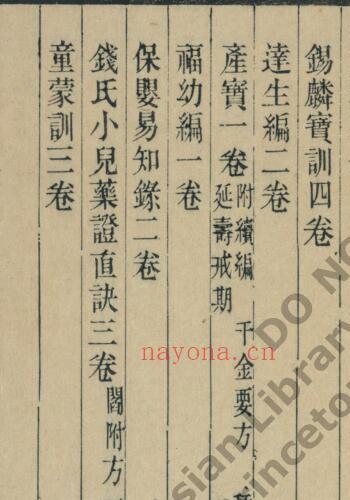 錫麟寶訓四卷
達生編二卷
產寶一卷 附續編 延壽戒期 千金要方
福幼編一卷
保嬰易知錄二卷
錢氏小兒藥證直訣三卷 閻附方
童蒙訓三卷
nayona.cn
DO NO
sian Library
inceton